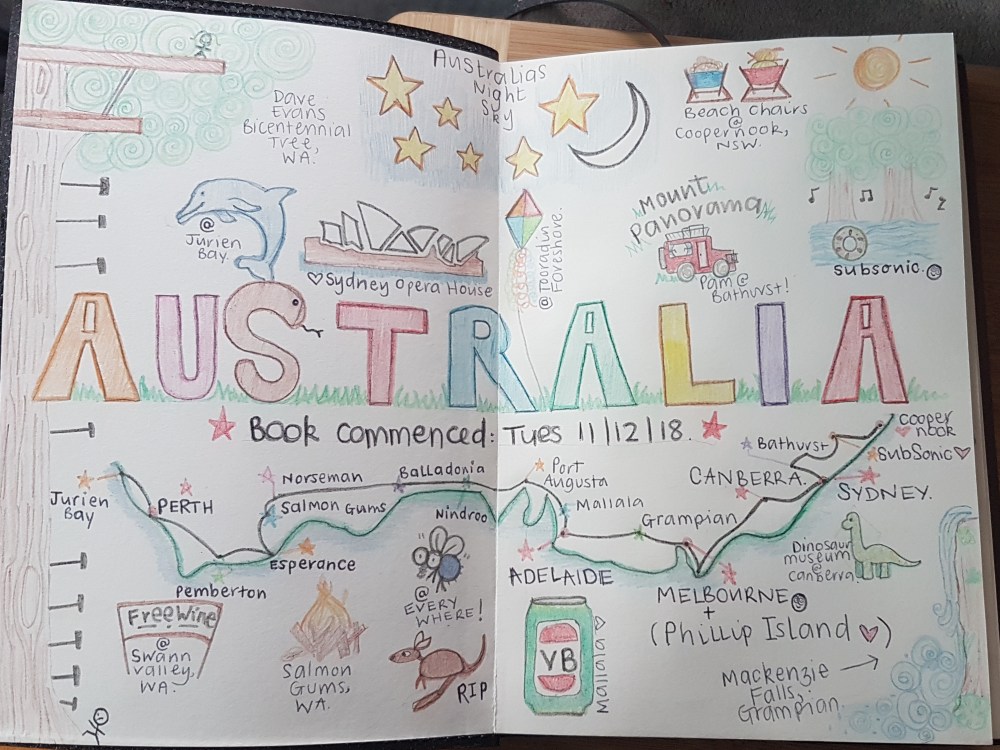 Dave
Evans
Bicentennial
Tree,
WA.
Australias
Night
Sky
Beach Chairs
@
Coopernook,
NSW.
@
Jurien
Bay.
♡Sydney Opera House
@Tooradin
Foreshore.
Mount
Panorama
Pam@
Bathurst!
Subsonic.
AUSTRALIA
Book commenced: Tues 11/12/18.
Jurien
Bay
PERTH
Pemberton
Norseman
Salmon Gums
Esperance
Balladonia
Nindroo
Port
Augusta
Mallala
ADELAIDE
Grampian
MELBOURNE
+
(Phillip Island ♡)
CANBERRA.
Bathurst
Cooper
nook
SubSonic♡
SYDNEY.
Free Wine
@
Swann
Valley,
WA.
Salmon
Gums,
WA.
@
EVERY
WHERE!
RIP
VB
Mallala ♡
Dinosaur
museum
@
Canberra.
Mackenzie
Falls,
Grampian.